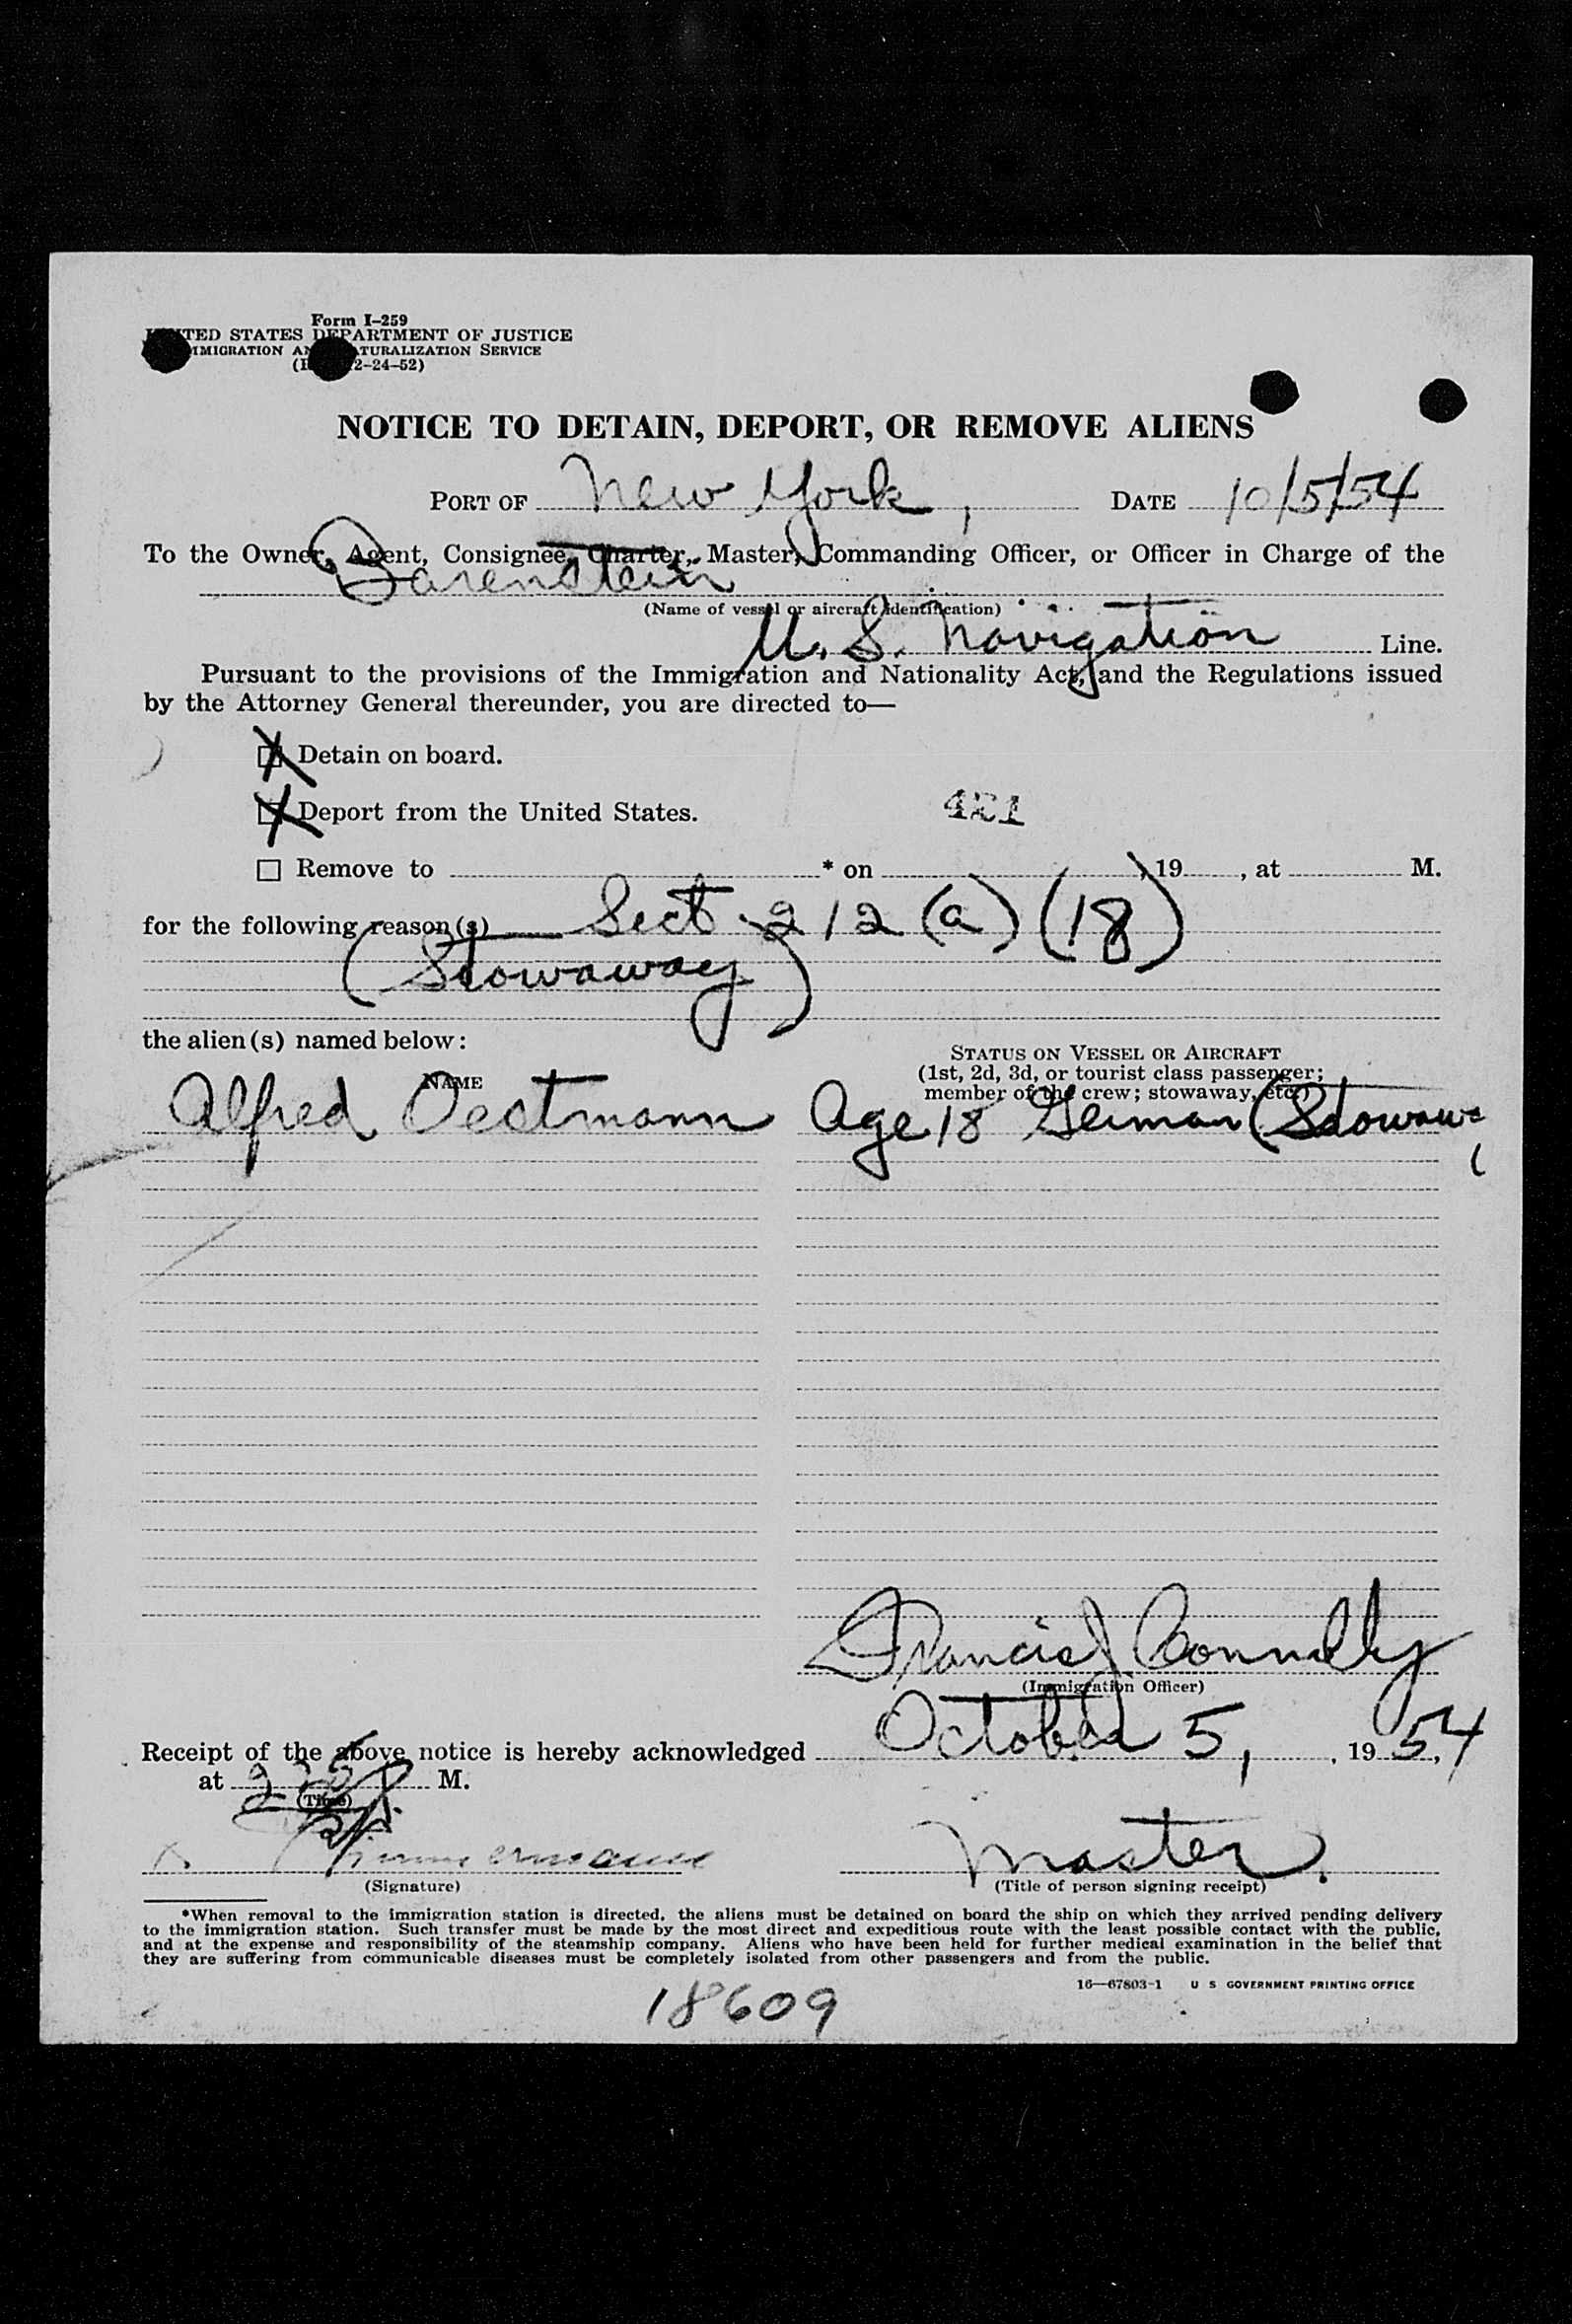 Form I-259
UNITED STATES DEPARTMENT OF JUSTICE
IMMIGRATION AND NATURALIZATION SERVICE
2-24-52)
NOTICE TO DETAIN, DEPORT, OR REMOVE ALIENS
PORT OF New York, DATE 10/5/54
To the Owner, Agent, Consignee, Charter, Master, Commanding Officer, or Officer in Charge of the
Barenstein
(Name of vessel or aircraft identification)
U. S. Navigation Line.
Pursuant to the provisions of the Immigration and Nationality Act, and the Regulations issued
by the Attorney General thereunder, you are directed to—
X Detain on board.
X Deport from the United States. 421
Remove to * on , 19 , at M.
for the following reason(s) Sect. 212 (a) (18)
(Stowaway)
the alien(s) named below:
NAME
STATUS ON VESSEL OR AIRCRAFT
(1st, 2d, 3d, or tourist class passenger;
member of the crew; stowaway, etc.)
Alfred Oectmann Age 18 German (Stowaw
Francis J Connolly
(Immigration Officer)
Receipt of the above notice is hereby acknowledged October 5, , 1954,
at M.
(Time)
Master.
(Signature) (Title of person signing receipt)
*When removal to the immigration station is directed, the aliens must be detained on board the ship on which they arrived pending delivery
to the immigration station. Such transfer must be made by the most direct and expeditious route with the least possible contact with the public,
and at the expense and responsibility of the steamship company. Aliens who have been held for further medical examination in the belief that
they are suffering from communicable diseases must be completely isolated from other passengers and from the public.
16—67803-1 U S GOVERNMENT PRINTING OFFICE
18609